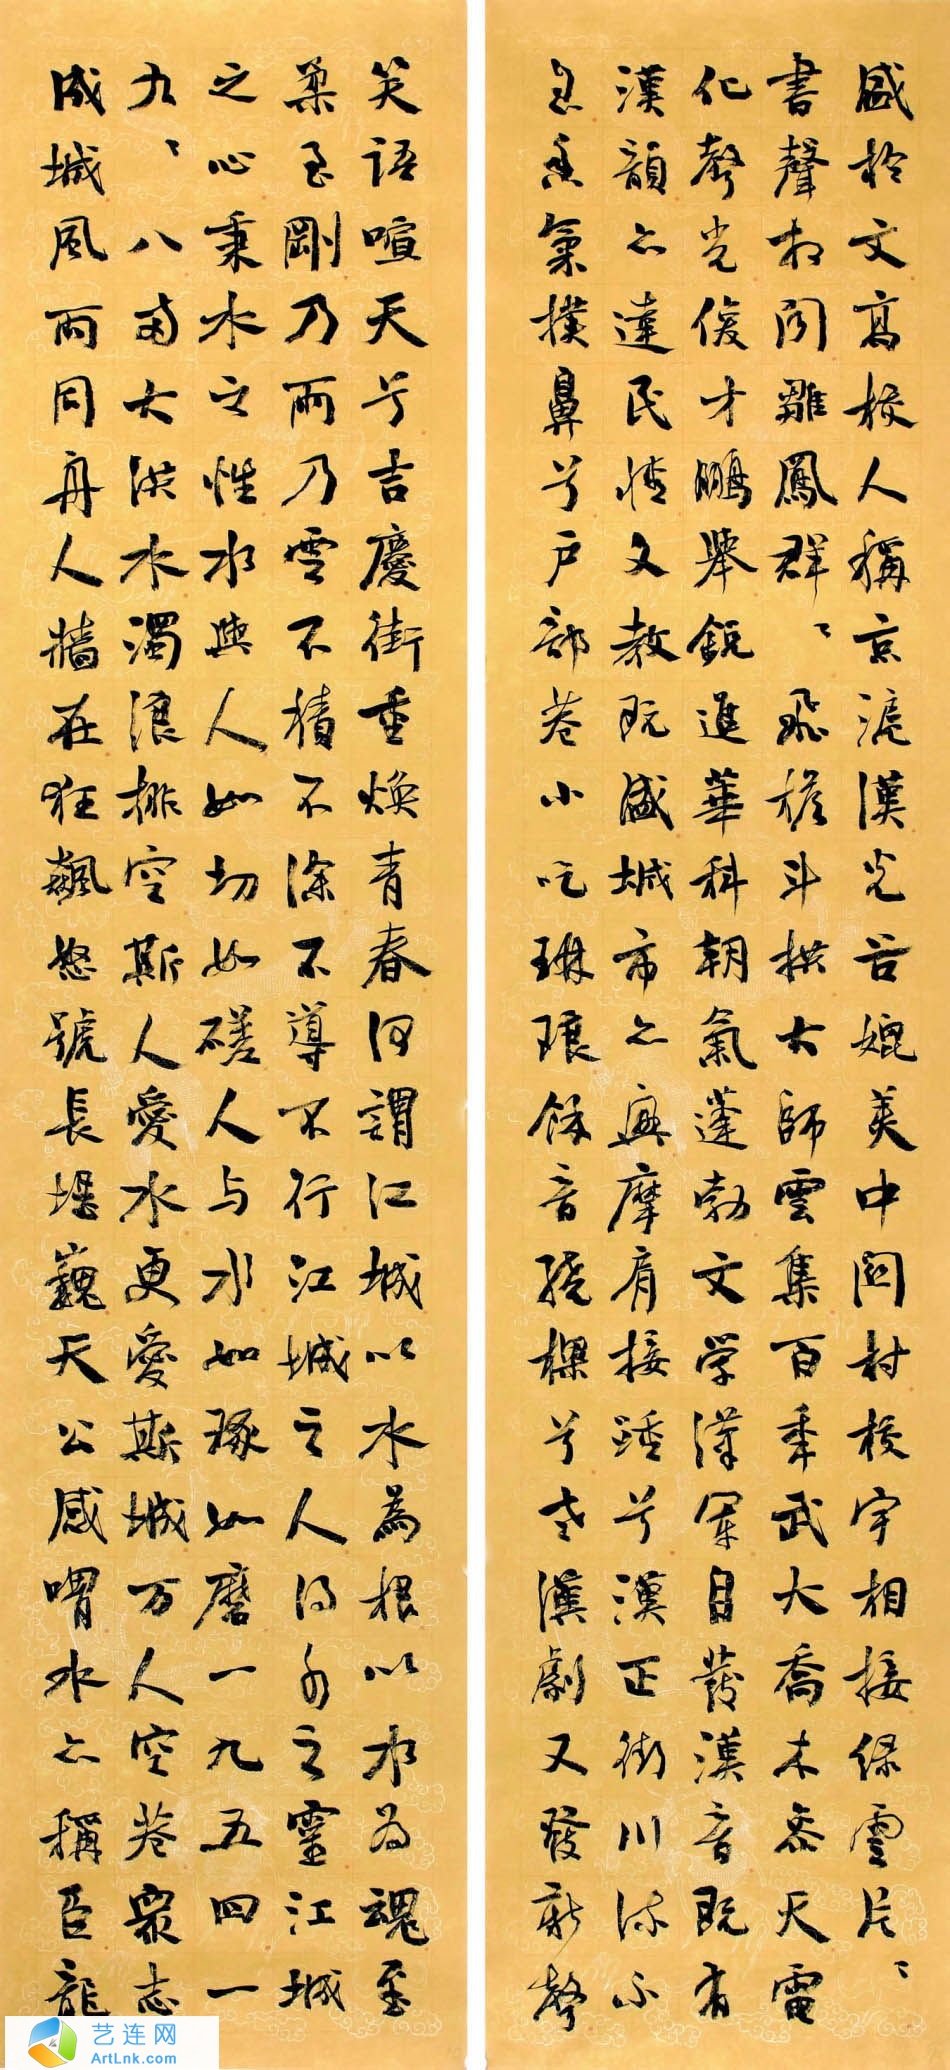 盛於文高校人稱京滬漢光谷媲美中関村校宇相接綠雲片〻
書聲相闻雛鳳群〻飛檐斗拱大師雲集百年武大喬木参天電
化聲光俊才鵬舉銳進華科朝氣蓬勃文学漢軍自發漢音既有
漢韻亦達民情文教既盛城市亦興摩肩接踵兮漢正街川流不
息香氣撲鼻兮户部巷小吃琳琅餘音繞樑兮老漢劇又發新聲
笑語喧天兮吉慶街重焕青春何謂江城以水為根以水为魂至
柔至剛乃雨乃雲不積不深不導不行江城之人得水之靈江城
之心秉水之性水與人如切如磋人与水如琢如磨一九五四一
九〻八两大洪水濁浪排空斯人愛水更愛斯城万人空巷眾志
成城風雨同舟人牆在狂飆怒號長堤巍天公感喟水亦稱臣龍
艺连网
ArtLnk.com